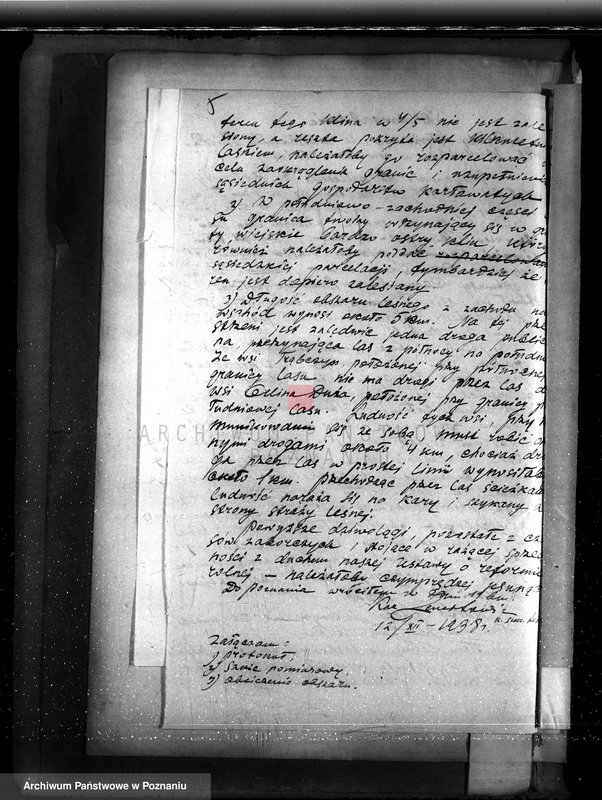 5
teren tego klina w 4/5 nie jest zale
siony, a reszta pokryta jest
laskiem, należałoby go rozparcelować
celu zaokrąglenia granic i uzupełnienia
sąsiednich gospodarstw karłowatych
2) W południowo-zachodniej części
granica tworzy wrzynający się w gr
ty wiejskie bardzo ostry klin, który
również należałoby poddać rozparcelowan
sąsiedzkiej parcelacji, tymbardziej że
ren jest dopiero zalesiany.
3) Długość obszaru leśnego z zachodu na
wschód wynosi około 5 km. Na tej prze
strzeni jest zaledwie jedna droga public
na, przecinająca las z północy na południe
Ze wsi położonej przy północnej
granicy lasu nie ma drogi przez las d
wsi Celina Duża, położonej przy granicy p
łudniowej lasu. Ludność tych wsi, przy
munikowaniu się ze sobą, musi robić
nymi drogami około 4 km, chociaż dro
ga przez las w prostej linii wynosiłab
około 1 km. Przechodząc przez las ścieżkam
ludność naraża się na kary i szykany z
strony straży leśnej.
Powyższe dziwolągi, pozostałe z cz
sów zaborczych, stojące w rażącej sprze
ności z duchem naszej Ustawy o reformie
rolnej – należałoby czymprędzej usuną
Do Poznania wróciłem w dniu
12/XII – 1938 r.
Załączam:
1) protokuł,
2) szkic pomiarowy,
3) obliczenie obszaru.
ARCHIWUM PAŃSTWOWE
Archiwum Państwowe w Poznaniu